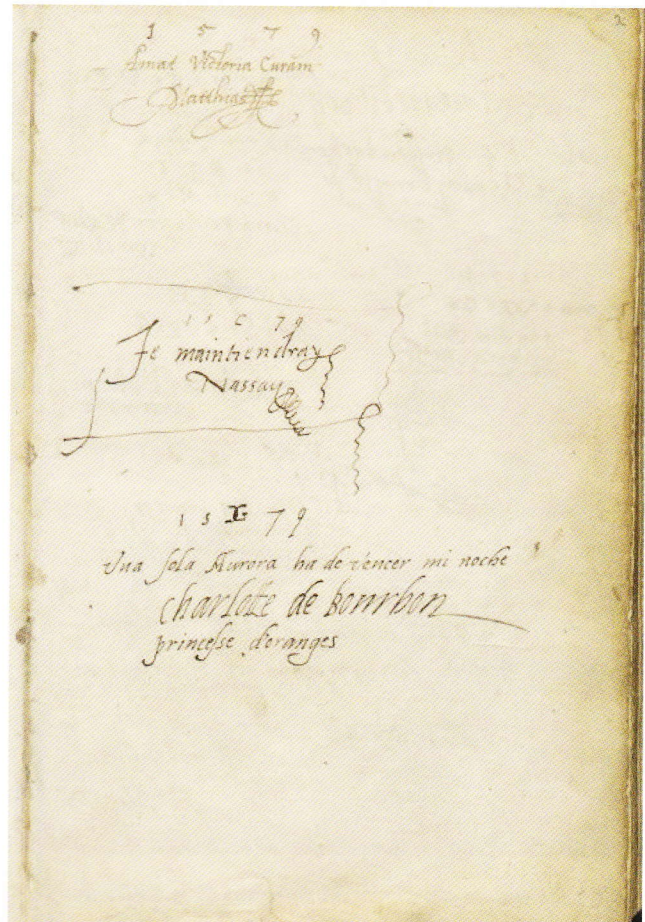 2
1 5 7 9
Amat Victoria Curam
Matthias
1 5 C 7 9
Je maintiendray
Nassau
1 5 G 7 9
Una sola Aurora ha de vencer mi noche
Charlotte de bourbon
princesse d'oranges